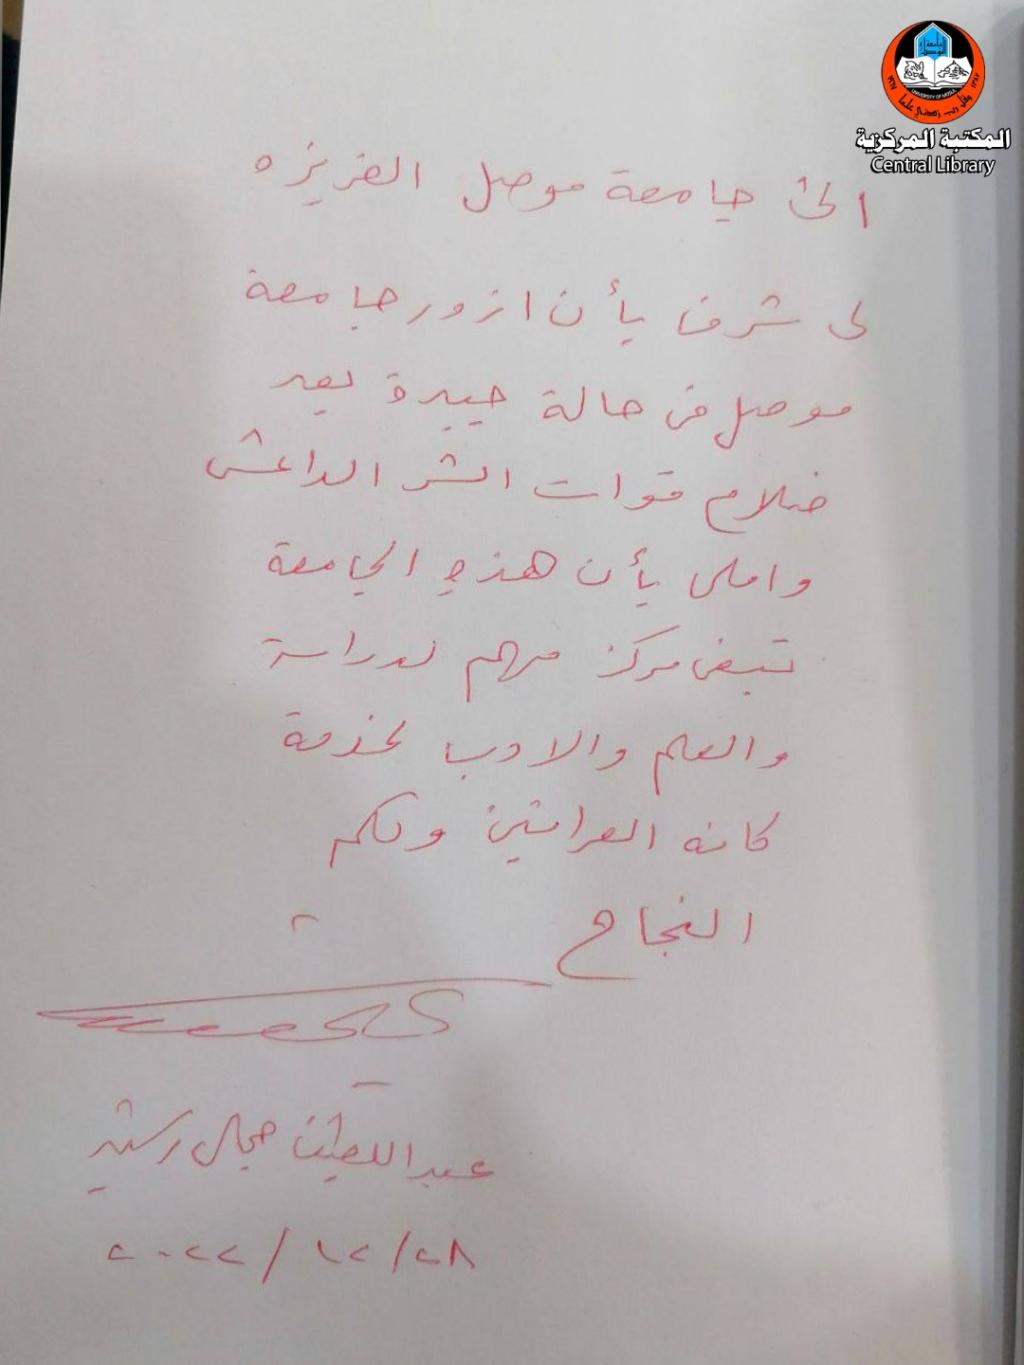 المكتبة المركزية
Central Library
الى جامعة موصل العزيزه
لى شرف بأن ازور جامعة
موصل فى حالة جيدة بعد
ضلام قوات الشر الداعش
واملى بأن هذه الجامعة
تبقى مركز مهم لدراسة
والعلم والادب لخدمة
كافه العراقين ولكم
النجاح
عبداللطيف جمال رشيد
٢٠٢٢/١٢/٢٨